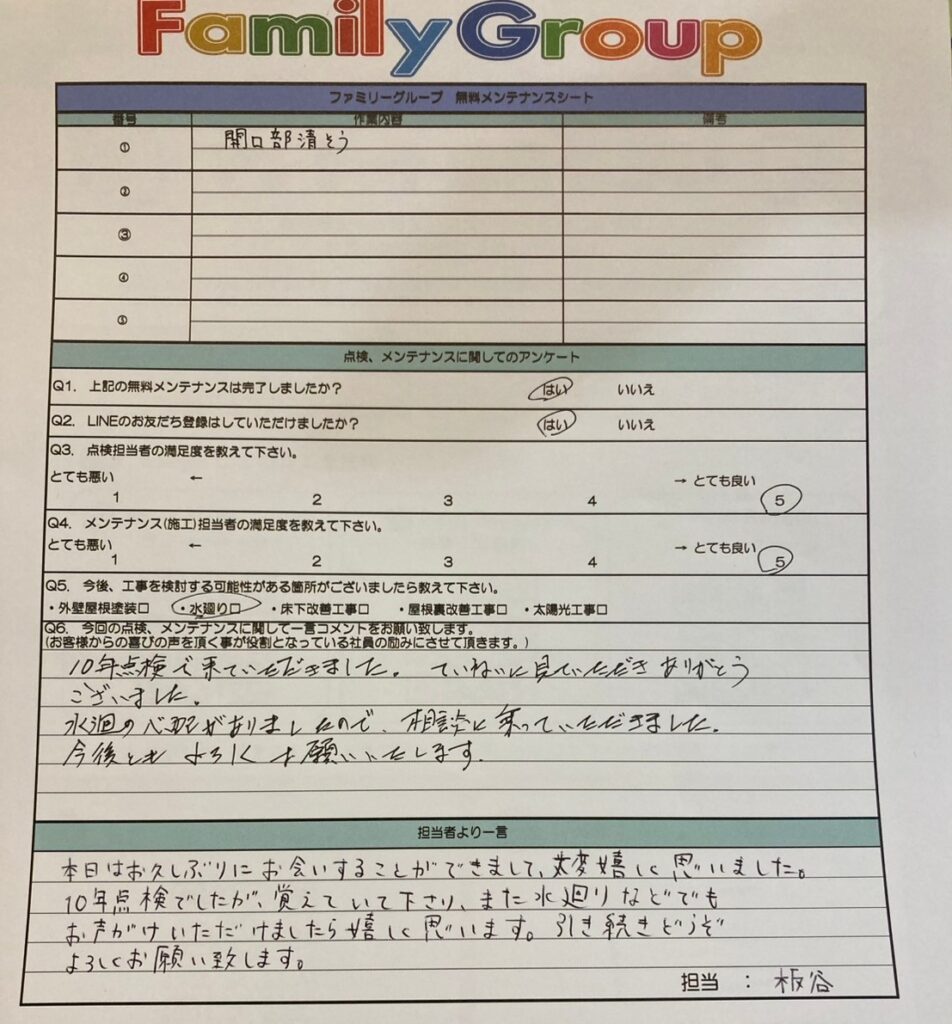 Family Group
ファミリーグループ 無料メンテナンスシート
番号 作業内容 備考
① 開口部清そう
②
③
④
⑤
点検、メンテナンスに関してのアンケート
Q1. 上記の無料メンテナンスは完了しましたか? はい いいえ
Q2. LINEのお友だち登録はしていただけましたか? はい いいえ
Q3. 点検担当者の満足度を教えて下さい。
とても悪い ← → とても良い
1 2 3 4 5
Q4. メンテナンス(施工)担当者の満足度を教えて下さい。
とても悪い ← → とても良い
1 2 3 4 5
Q5. 今後、工事を検討する可能性がある箇所がございましたら教えて下さい。
・外壁屋根塗装□ ・水廻り□ ・床下改善工事□ ・屋根裏改善工事□ ・太陽光工事□
Q6. 今回の点検、メンテナンスに関して一言コメントをお願い致します。
(お客様からの喜びの声を頂く事が役割となっている社員の励みにさせて頂きます。)
10年点検で来ていただきました。ていねいに見ていただきありがとう
ございました。
水廻の心配がありましたので、相談に乗っていただきました。
今後とも よろしく お願いいたします。
担当者より一言
本日はお久しぶりにお会いすることができまして、大変嬉しく思いました。
10年点検でしたが、覚えていて下さり、また水廻りなどでも
お声がけいただけましたら嬉しく思います。引き続きどうぞ
よろしくお願い致します。
担当 : 板谷